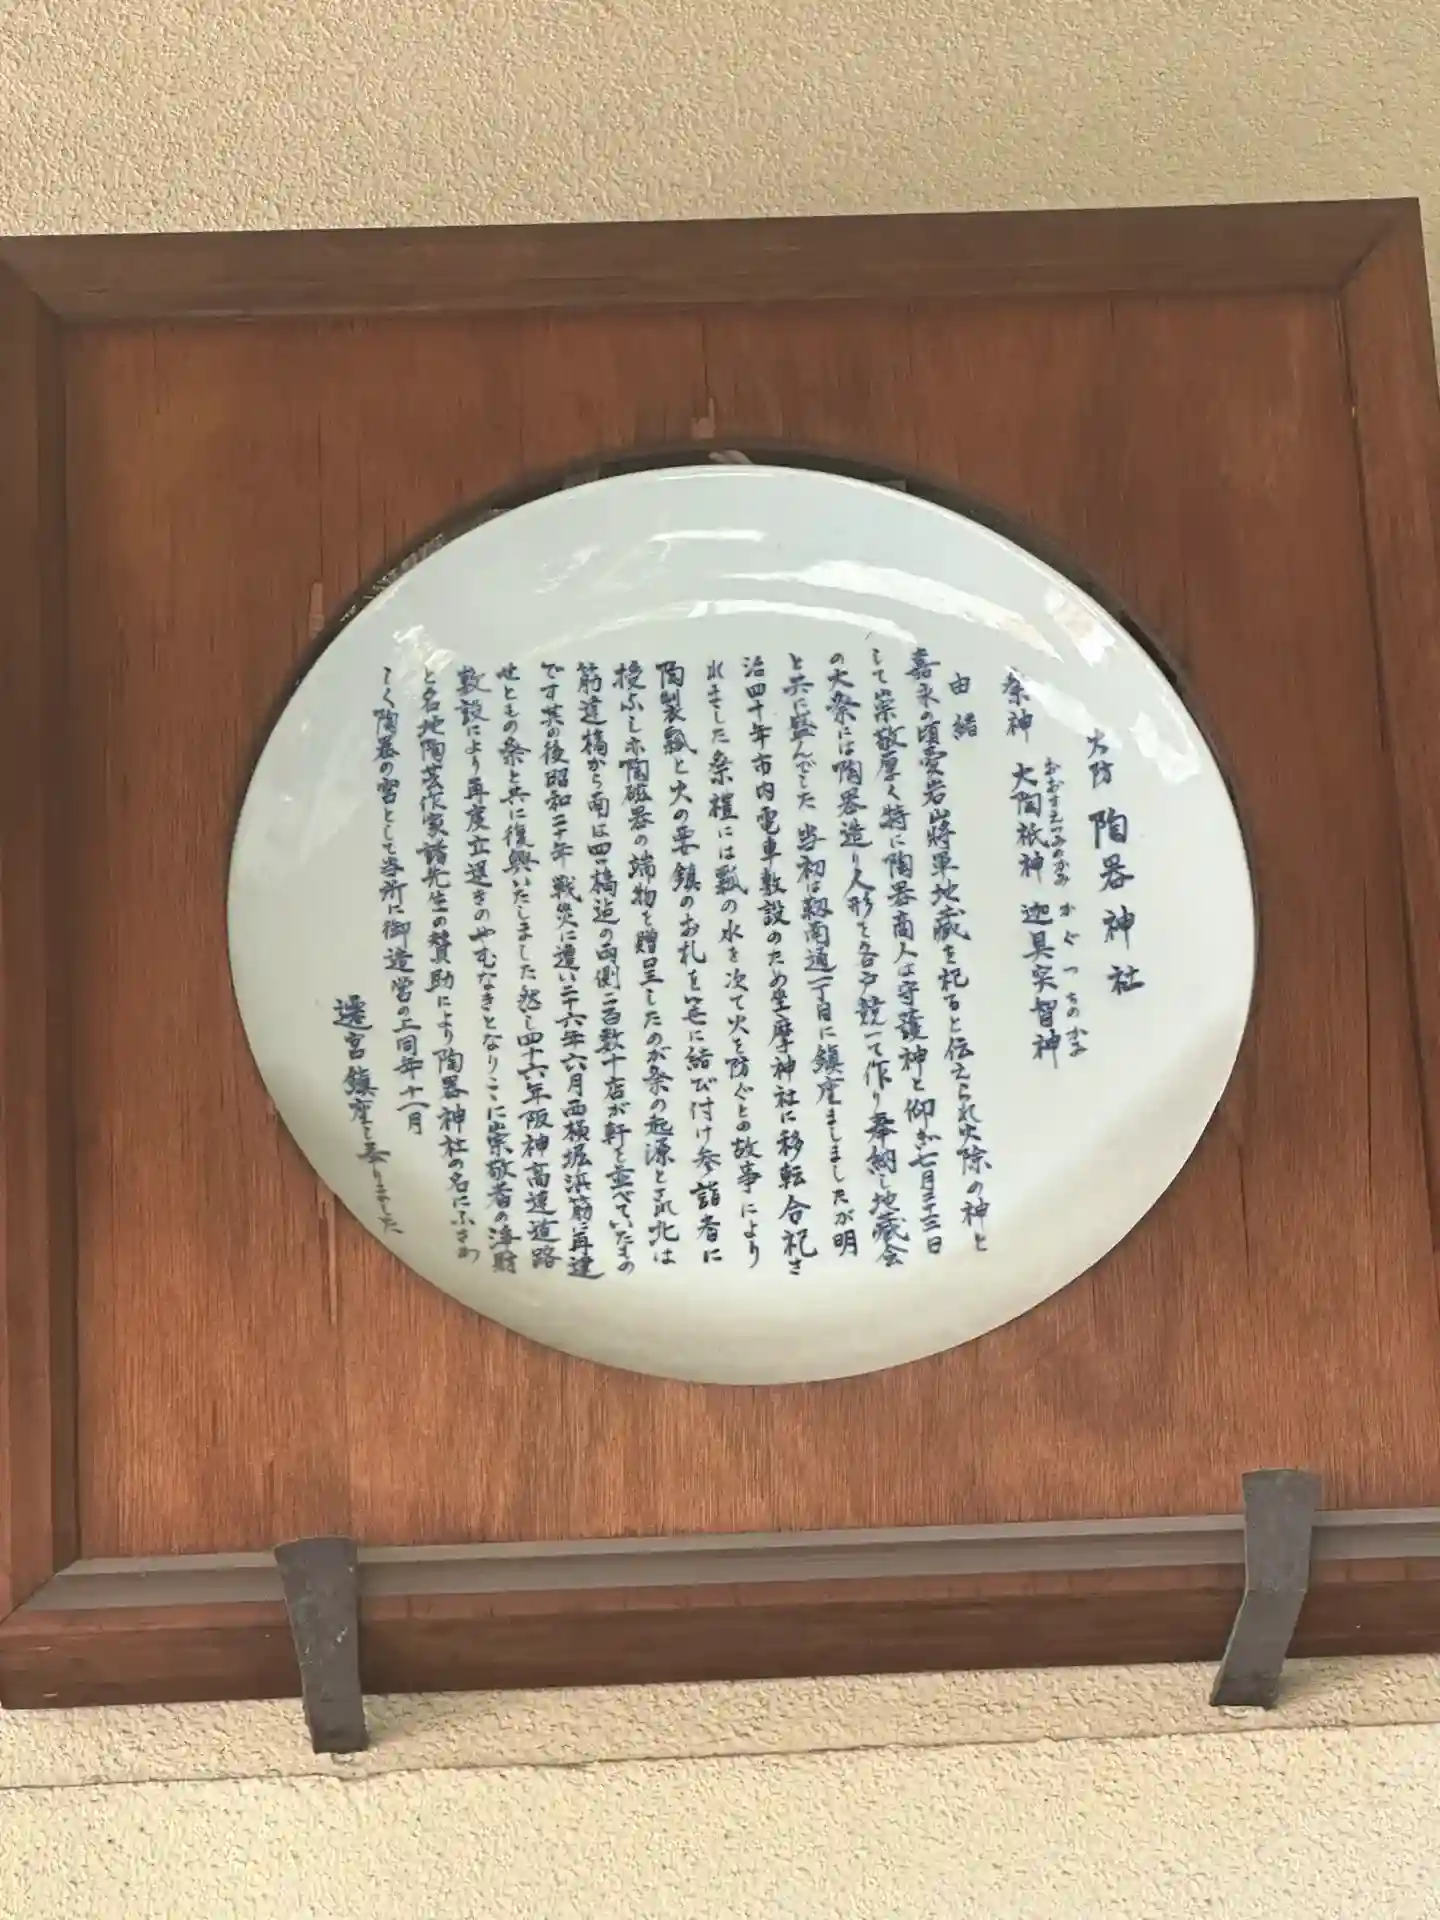 火防 陶器神社
祭神 大陶祇神 迦具突智神
おおすえつみのかみ かぐつちのかみ
由緒
嘉永の頃愛宕山将軍地蔵を祀ると伝えられ火除の神と
して崇敬厚く特に陶器商人は守護神と仰ぎ七月二十三日
の大祭には陶器造り人形を各戸競って作り奉納し地蔵会
と共に盛んでした 当初は靱南通一丁目に鎮座ましましたが明
治四十年市内電車敷設のため坐摩神社に移転合祀さ
れました祭禮には瓢の水を次て火を防ぐとの故事により
陶製瓢と火の要鎮のお札を笹に結び付け参詣者に
授ふし亦陶磁器の端物を贈呈したのが祭の起源とされ北は
筋違橋から南は四ツ橋迄の両側二百数十店が軒を並べていたもの
です其の後昭和二十年戦災に遭い二十六年六月西横堀浜筋に再建
せともの祭と共に復興いたしました然し四十六年阪神高速道路
敷設により再度立退きのやむなきとなりここに崇敬者の浄財
と名地陶芸作家諸先生の賛助により陶器神社の名にふさわ
しく陶器の宮として当所に御造営の上同年十一月
遷宮鎮座し奉りました